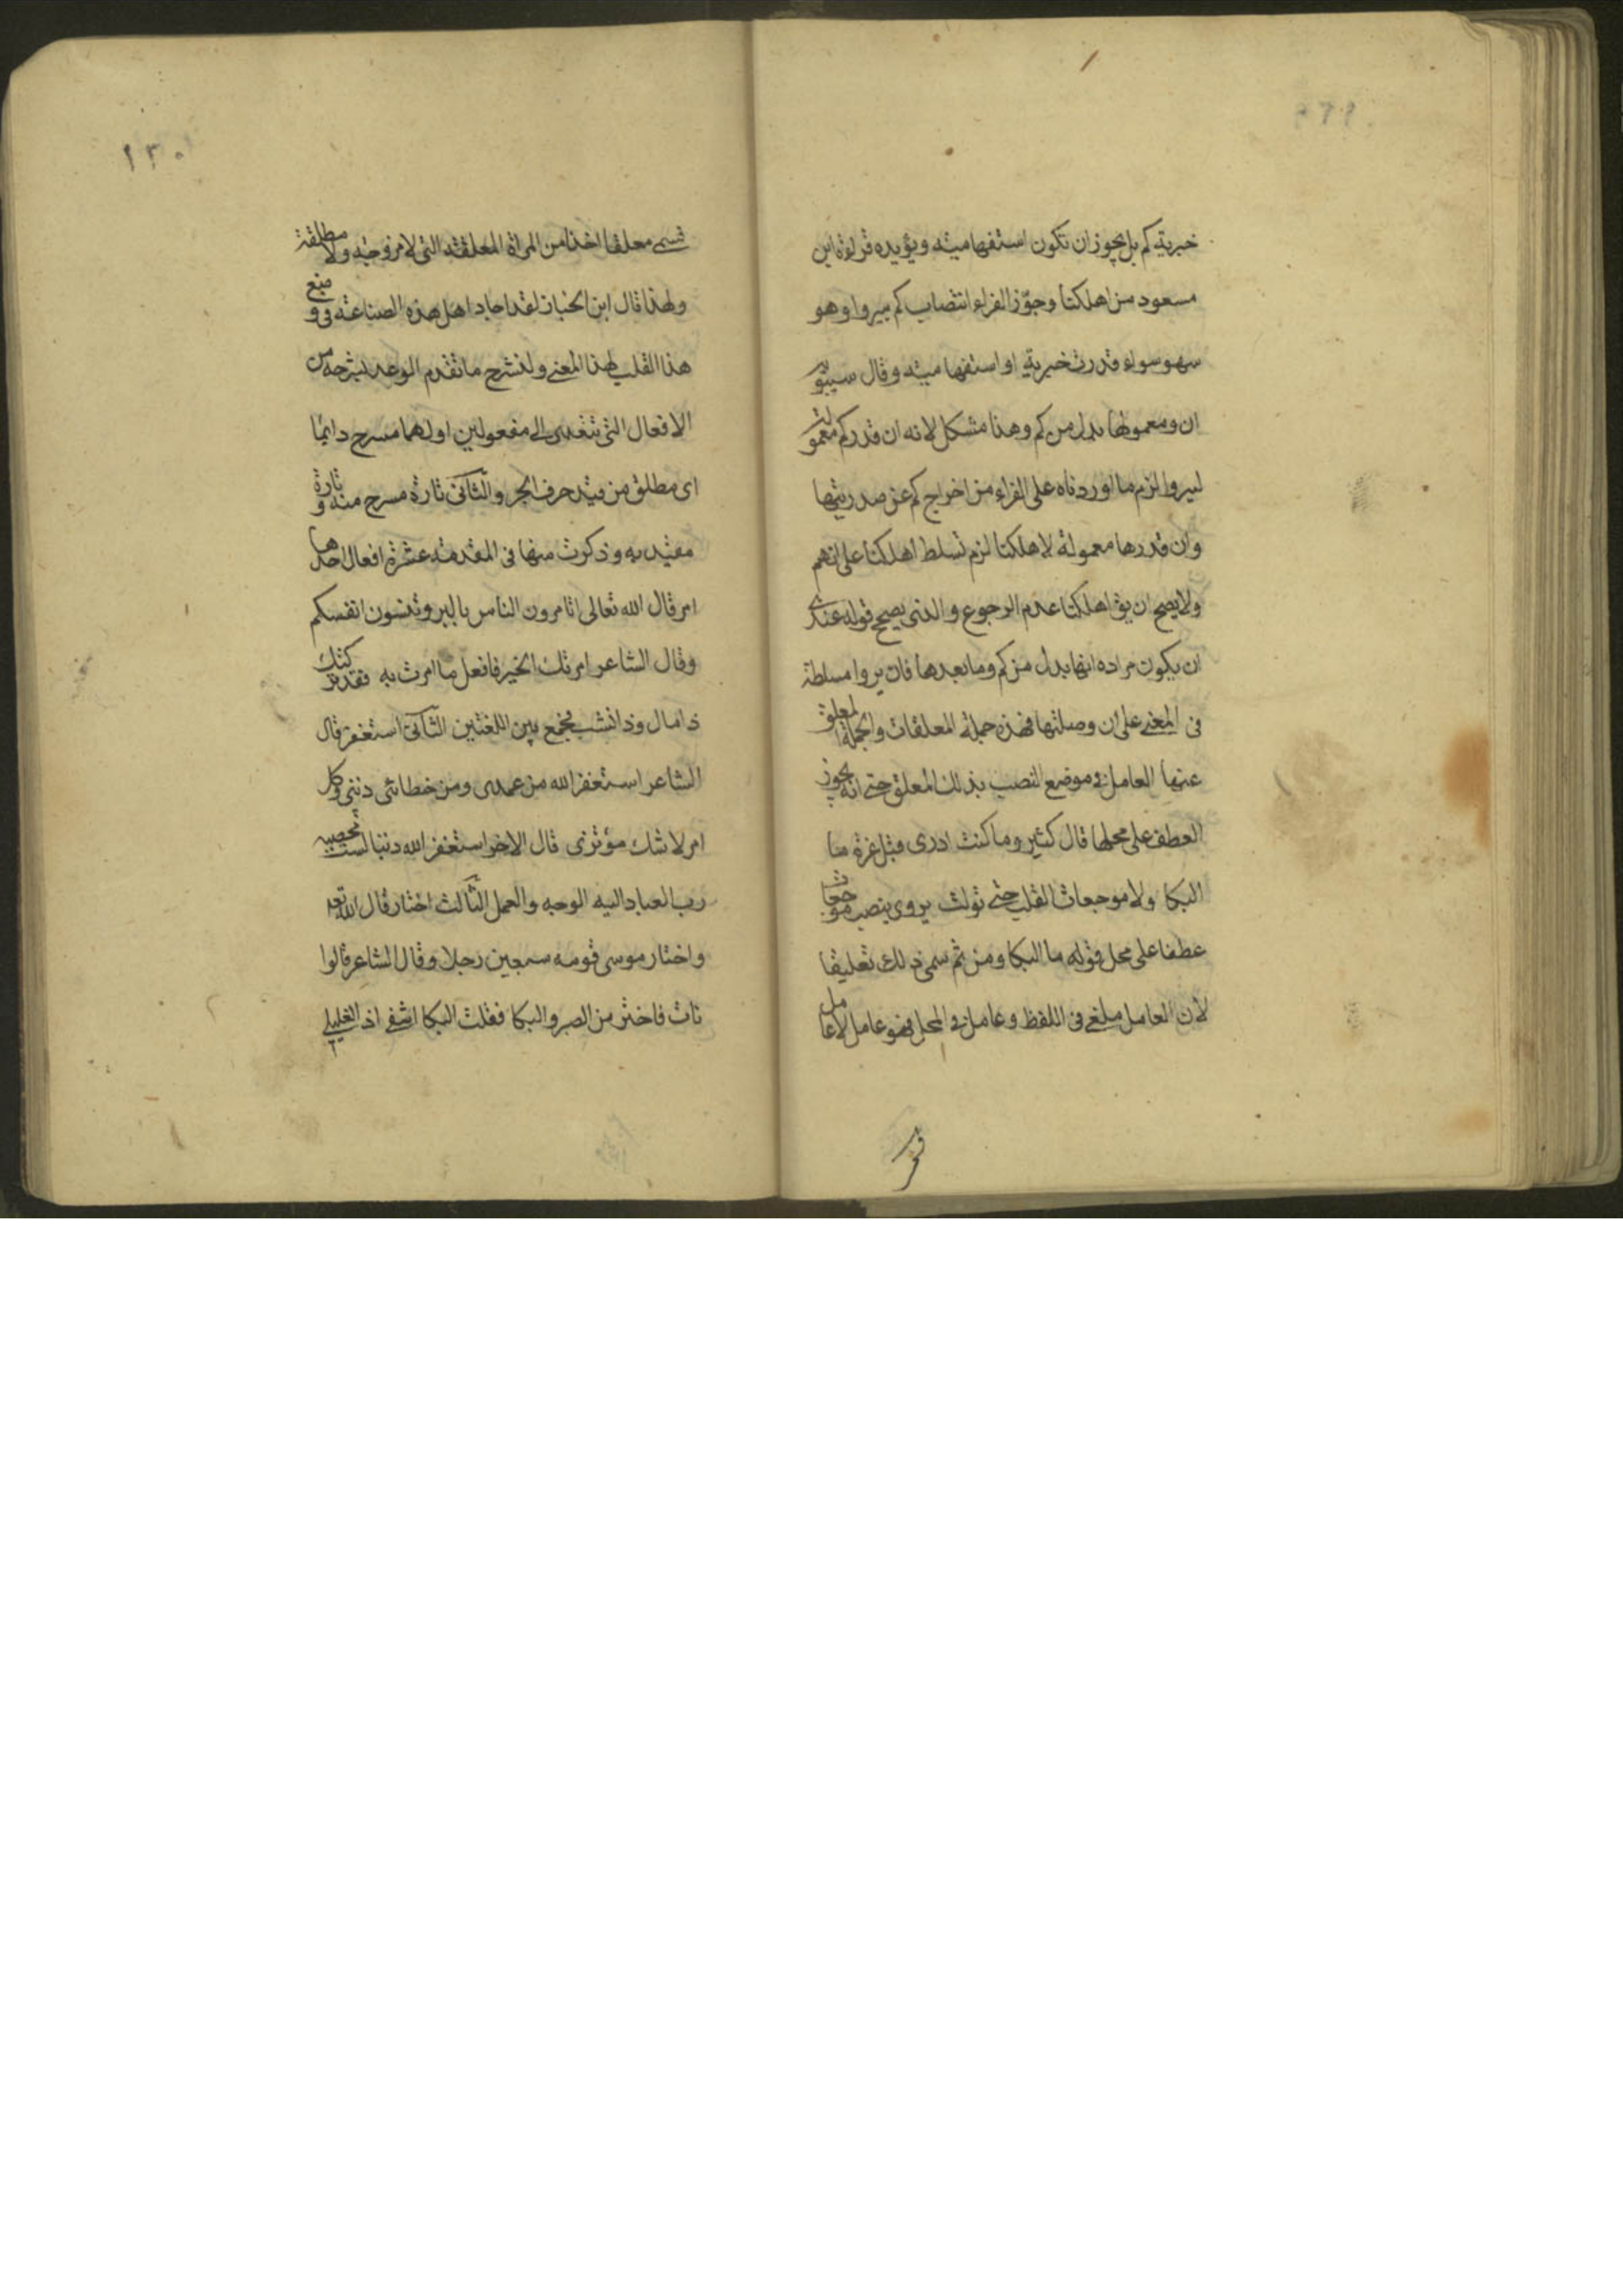 خبرية كم بل يجوز ان تكون استفهامية ويؤيده قراءة ابن
مسعود من اهلكنا وجوّز الفراء انتصاب كم بيروا وهو
سهو سواء قدرت خبرية او استفهامية وقال سيبويه
ان ومعمولها بدل من كم وهذا مشكل لانه ان قدر كم معمولة
ليروا لزم ما اوردناه على الفراء من اخراج كم عن صدريتها
وان قدرها معمولة لاهلكنا لزم تسلط اهلكنا على انهم
ولا يصح ان يق اهلكنا عدم الرجوع والذى يصحح قوله عندى
ان يكون مراده انها بدل من كم وما بعدها فان يروا مسلطة
فى المعنى على ان وصلتها فهذه جملة المعلقات والجملة المعلق
عنها العامل فى موضع النصب بذلك المعلق حتى انه يجوز
العطف على محلها قال كثير وما كنت ادرى قبل عزة ما
البكا ولا موجعات القلب حتى تولت يروى بنصب موجعات
عطفا على محل قوله ما البكا ومن ثم سمى ذلك تعليقا
لان العامل ملغى فى اللفظ وعامل فى المحل فهو عامل لا عامل
١٣٠
تسمى معلقا اخذا من المراة المعلقة التى لا مزوجة ولا مطلقة
ولهذا قال ابن الخباز لقد اجاد اهل هذه الصناعة فى وضع
هذا القلب لهذا المعنى ولنشرح ما تقدم الوعد بشرحه من
الافعال التى تتعدى الى مفعولين اولهما مسرح دايما
اى مطلق من قيد حرف الجر والثانى تارة مسرح منه وتارة
مقيد به وذكرت منها فى المقدمة عشرة افعال احدها
امر قال الله تعالى اتامرون الناس بالبر وتنسون انفسكم
وقال الشاعر امرتك الخير فافعل ما امرت به فقد تركتك
ذا مال وذا نشب فجمع بين اللغتين الثانى استغفر قال
الشاعر استغفر الله من عمدى ومن خطائى ذنبى وكل
امرلا شك مؤتزى قال الاخر استغفر الله ذنبا لست محصيه
رب العباد اليه الوجه والعمل الثالث اختار قال الله تع
واختار موسى قومه سبعين رجلا وقال الشاعر قالوا
نات فاختر من الصبر والبكا فقلت البكا اشفى اذ الغليلى